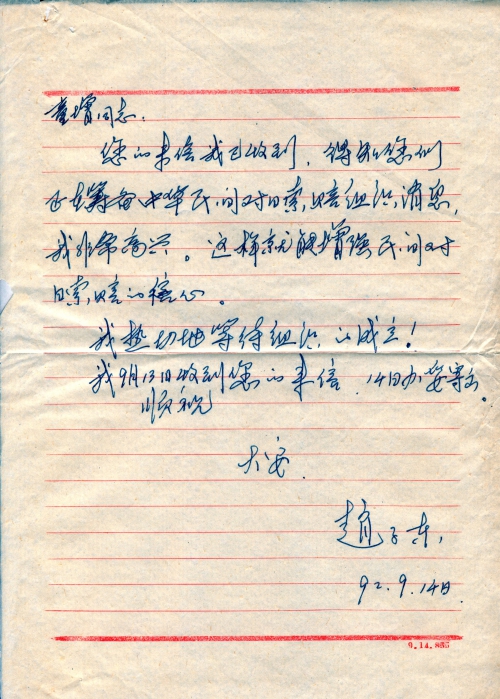 童增同志:
您的来信我已收到,得知您们
正在筹备中华民间对日索赔组织消息,
我非常高兴。这样就能增强民间对
日索赔的信心。
我热切地等待组织的成立!
我9月13日收到您的来信 14日办妥寄出。
顺祝
大安
赵子东
92.9.14日
9.14.855